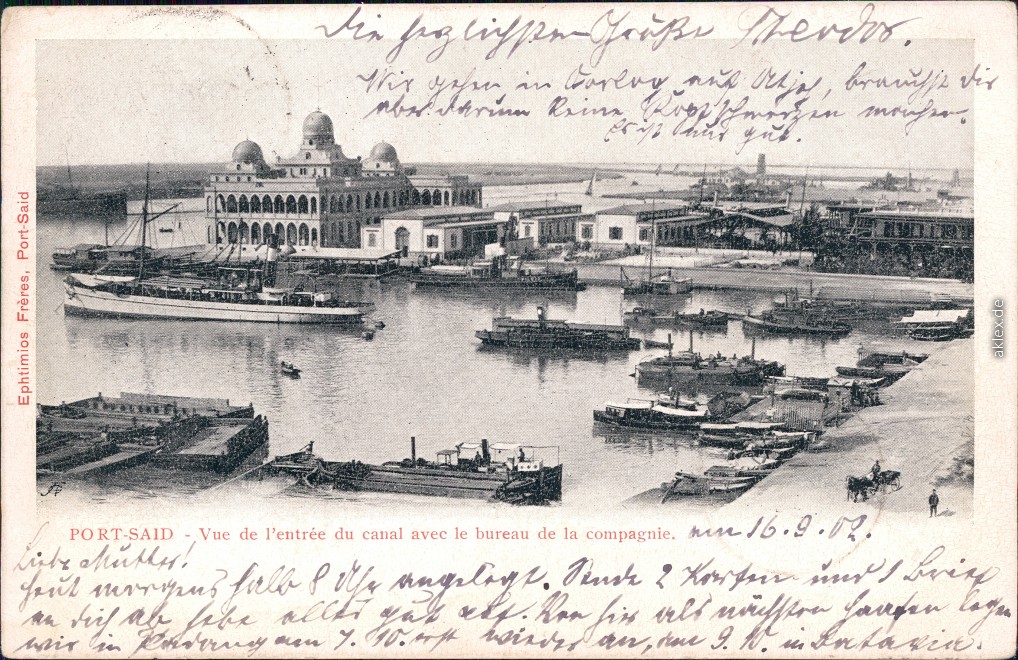 Die herzlichsten Grüße Theodor.
Wir gehen in Corlog auf Atjeh, brauchst dir
aber darum keine Kopfschmerzen machen.
Es ist nur gut.
Ephtimios Frères, Port-Said
aklex.de
PORT-SAID - Vue de l'entrée du canal avec le bureau de la compagnie.
am 16.9.02.
Liebe Mutter!
heut morgens halb 8 Uhr angelegt. Sende 2 Karten und 1 Brief
an dich ab hebe alles gut auf. Von hier als nächsten Haafen legen
wir in Padang am 7.10. erst wieder an, am 9.10. in Batavia.